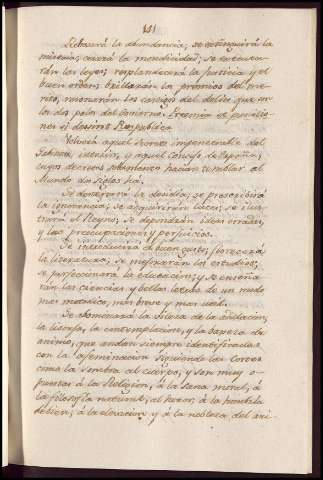 181
Rebosará la abundancia; se extinguirá la
miseria; cesará la mendicidad; se executa-
rán las leyes; resplandecerá la justicia y el
buen orden; brillarán los premios del me-
rito, y los castigos del delito que son
los dos polos del Govierno. Premio et
si desint Respublica
Volverá aquel Secreto impenetrable del
Gabinete interior, y aquel Consejo de España,
cuyos decretos solamente hacian temblar al
Mundo dos siglos há.
Se desterrará la desidia, se proscribirá
la ignorancia; se adquirirán luces; se ilus-
trará el Reyno; se depondrán ideas erradas,
y las preocupaciones y perjuicios.
Se establecerá el buen gusto; florecerá
la literatura; se reformarán los estudios;
se perfeccionará la educacion; y se enseña-
rán las ciencias y bellas letras de un modo
mas metodico, mas breve y mas util.
Se abominará la vileza de la adulacion,
la lisonja, la contemplacion, y la baxeza de
animo, que andan siempre identificadas
con la afeminacion siguiendo las Cortes
como la sombra al cuerpo, y son muy o-
puestas á la Religion, á la sana moral, á
la filosofia natural, al honor, á la hombria
de bien, á la elevacion y á la nobleza del ani-